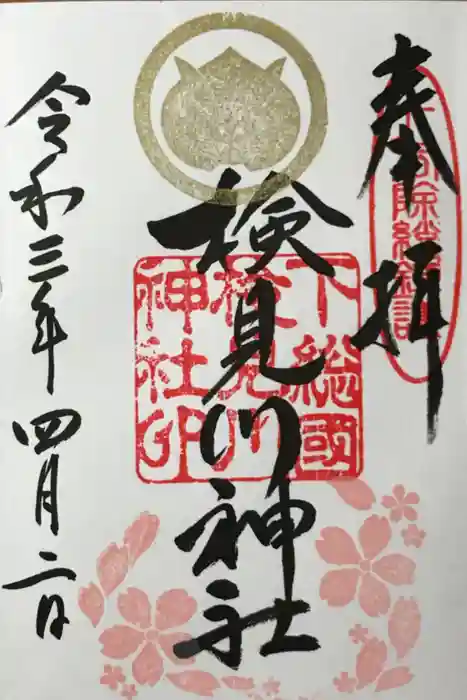 奉拝
検見川神社
下総國
検見川
神社印
令和三年四月二日